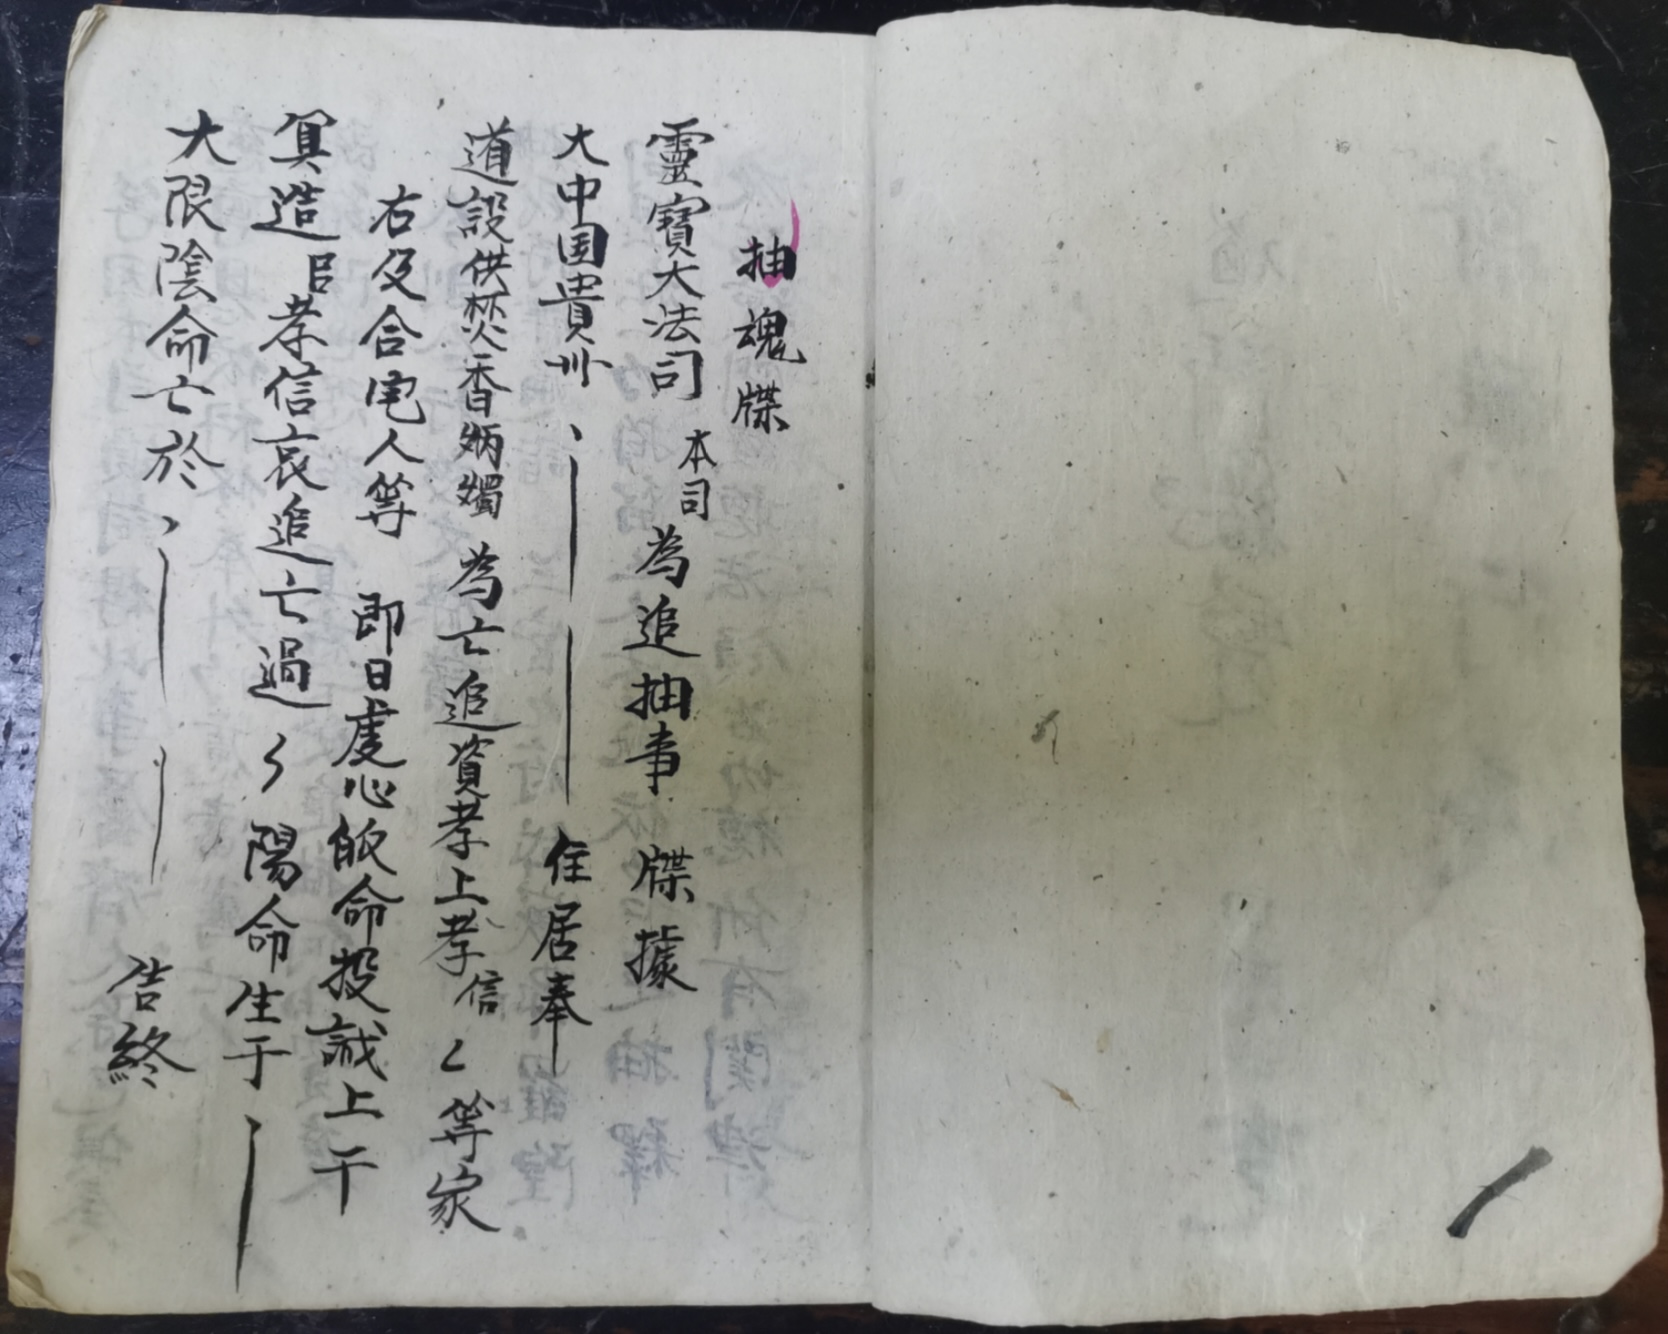 抽魂牒
靈寶大法司 本司 為追抽事 牒據
大中国貴州 住居奉
道設供焚香炳燭 為亡追資孝上孝信〱等家
右及合宅人等 即日虔心皈命投誠上干
冥造 㠯孝信哀追亡過〱陽命生于
大限陰命亡於 告終